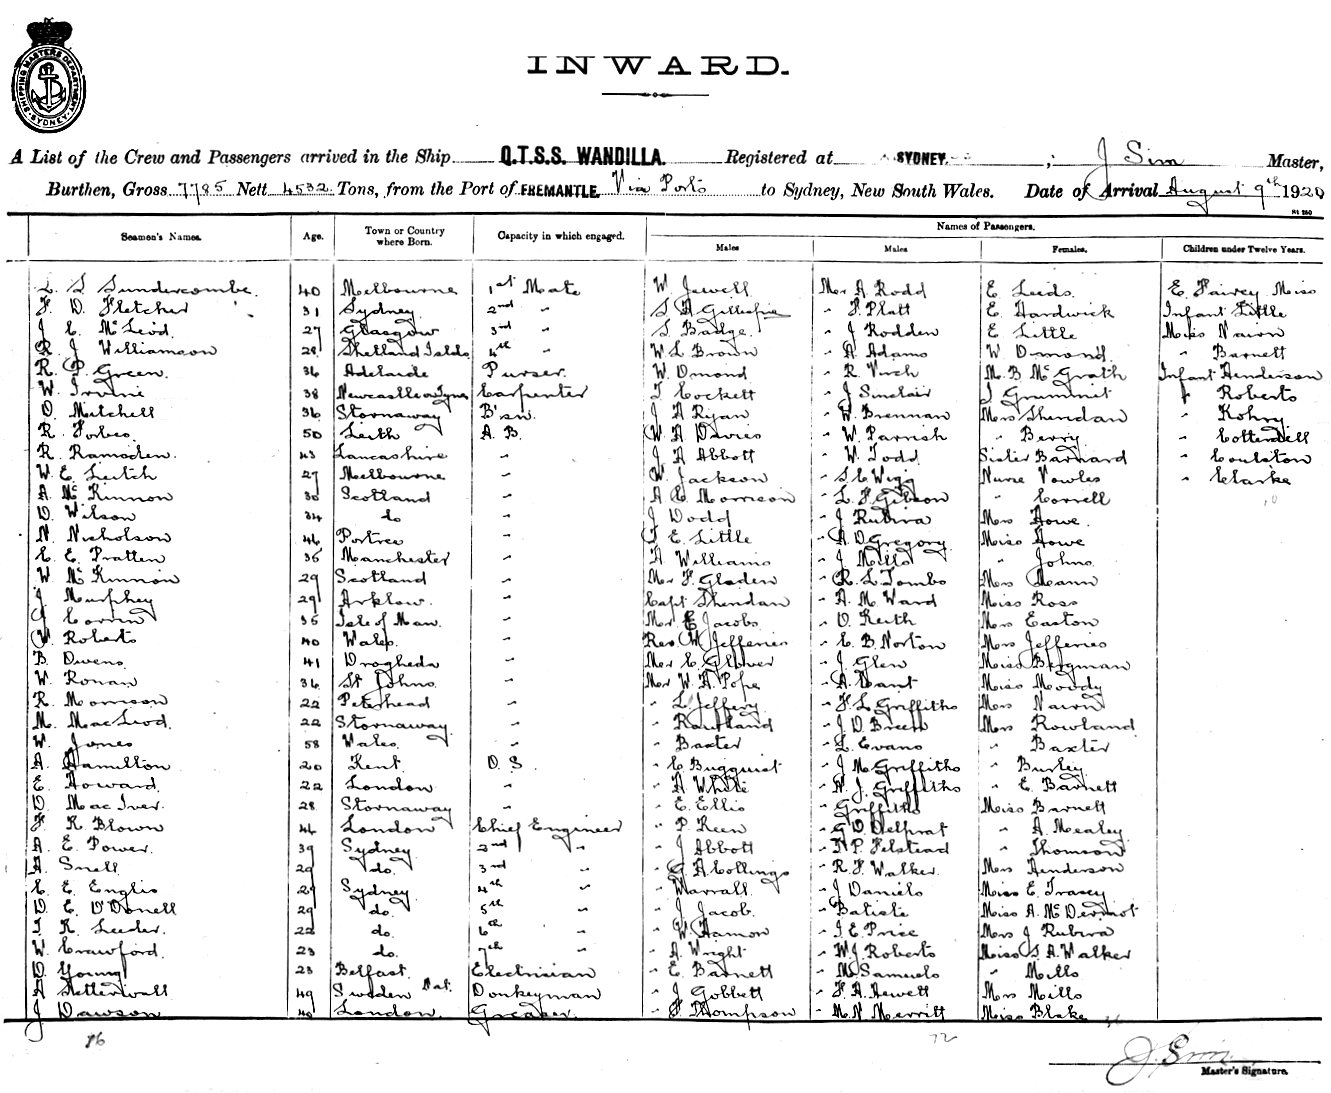 SHIPPING MASTERS DEPARTMENT
SYDNEY
INWARD.
A List of the Crew and Passengers arrived in the Ship Q.T.S.S. WANDILLA. Registered at SYDNEY ; J Sim Master,
Burthen, Gross 7785 Nett 4532 Tons, from the Port of FREMANTLE. Via Ports to Sydney, New South Wales. Date of Arrival August 9th 1920
Names of Passengers.
Seamen's Names. Age. Town or Country where Born. Capacity in which engaged. Males Males Females. Children under Twelve Years.
L S Sundercombe. 40 Melbourne 1st Mate W Jewell Mr A Rodd E Leeds. E Fairey Miss
F. D. Fletcher 31 Sydney 2nd " S A Gillespie " F. Platt E Hardwick Infant Little
J C. McLeod. 27 Glasgow 3rd " S Badge. " J Rodden E Little Miss Nairn
R J Williamson 28 Shetland Islds 4th " W L Brown " A Adams W Dmond. " Barnett
R. P. Green. 36 Adelaide Purser. W. Dmond " R M. B McGrath Infant Henderson
W. Irvine 38 Newcastle o Tyne Carpenter T Cockett " J Sinclair J Grummit " Roberts
D. Mitchell 36 Stornaway B'sn. J A Ryan " W. Brennan Mrs Sheridan " Kohry
R. Forbes. 50 Leith A.B. W A Davies " W. Parrish " Berry " Cotterell
R. Ramsden. 43 Lancashire " J A Abbott " W Todd Sister Barnard " Coulston
W. E. Leitch 27 Melbourne " W. Jackson " S C Wigg Nurse Vowles " Clarke
A. McKinnon 30 Scotland " A C Morrison " L. F. Gibson " Correll
D. Wilson 34 do " J Dodd " J Rubira Mrs Howe.
N. Nicholson 46 Portree " T E. Little " A D Gregory Miss Howe
C. E. Pratten 35 Manchester " A Williams " J Mills " Johns
W. McKinnon 29 Scotland " Mr F. Gladen " R. L Tombs Mrs Mann
J. Murphey 29 Arklow. " Capt Sheridan " A. M. Ward Miss Ross
J Corrin 35 Isle of Man. " Mr E Jacobs " D. Keith Mrs Easton
W Roberts 40 Wales. " Rev W Jefferies " C. B. Norton Mrs Jefferies
B. Owens 41 Drogheda " Mr C Glover " J. Glen Miss Bergman
W. Ronan 36 St Johns " Mr W. A. Pope " A. Nant Miss Moody
R. Morrison 22 Peterhead " " L. Jeffery " F. L. Griffiths Mrs Nairn
M. MacLeod. 22 Stornaway " " Rowland " J. D Breen Mrs Rowland
W. Jones 58 Wales. " " Baxter " L. Evans " Baxter
A. Hamilton 20 Kent. O. S. " C Bugquist " J M Griffiths " Burley
E. Howard. 22 London " " A White " N. J. Griffiths " E. Barnett
D. Mac Iver. 28 Stornaway " " E. Ellis " Griffiths Miss Barnett
F. R. Blown 44 London Chief Engineer " P Keen " G D Delprat " A. Mealey
A. E. Power. 39 Sydney 2nd " " J Abbott " N P. Felstead " Thomson
A. Snell 29 do. 3rd " " G A Collings " R. F. Walker. Mrs Henderson
C. E. Englis 27 Sydney 4th " " Warrall. " J Daniels Miss E. Tracey
D. E. O'Donell 29 do. 5th " " J. Jacob. " Batiste Miss A. McDermot
T. R. Leeder. 22 do. 6th " " W. Hamon " T. E. Price Mrs J Rubira
W. Crawford. 23 do. 7th " " A. Wright " W. J. Roberts Miss S. A. Walker
D. Young 23 Belfast. Electrician " E. Barnett " M. Samuels " Mills
A Hetterwall 49 Sweden Nat. Donkeyman " J Gobbett " F. A. Hewett Mrs Mills
J Dawson 40 London. Greaser. " F Thompson " M. N. Merritt Miss Blake 36
72
J. Sim
Master's Signature.